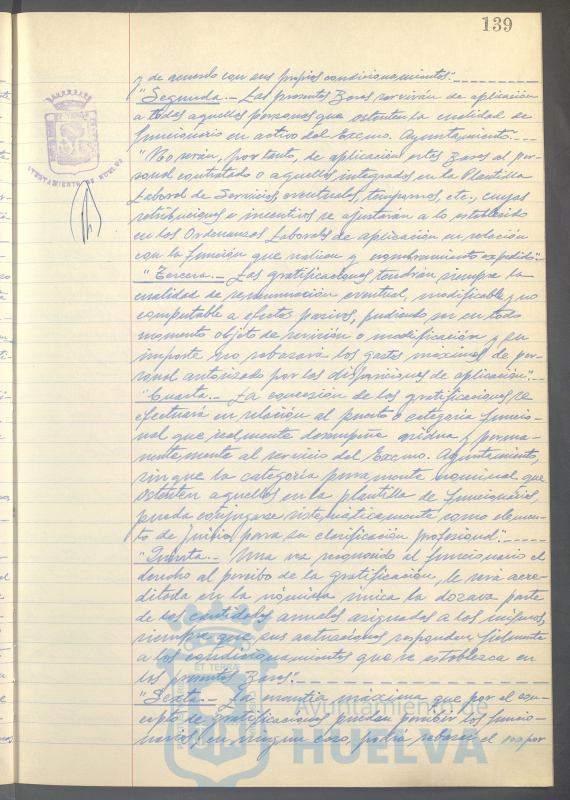 139
y de acuerdo con sus propios condicionamientos".
"Segunda.- Las presentes Bases servirán de aplicación
a todas aquellas personas que ostenten la cualidad de
funcionario en activo del Excmo. Ayuntamiento.
"No serán, por tanto, de aplicación estas Bases al per-
sonal contratado o aquellos integrados en la Plantilla
Laboral de Servicios, eventuales, temporeros, etc., cuyas
retribuciones e incentivos se ajustarán a lo establecido
en las Ordenanzas Laborales de aplicación en relación
con la función que realicen y nombramiento expedido".
"Tercera.- Las gratificaciones tendrán siempre la
cualidad de remuneración eventual, modificable y no
computable a efectos pasivos, pudiendo ser en todo
momento objeto de revisión o modificación y su
importe no rebasará los gastos máximos de per-
sonal autorizado por las disposiciones de aplicación".
"Cuarta.- La concesión de las gratificaciones se
efectuará en relación al puesto o categoría funcio-
nal que realmente desempeñe asidua y perma-
nentemente al servicio del Excmo. Ayuntamiento,
sin que la categoría puramente nominal que
ostenten aquellos en la plantilla de funcionarios,
pueda conjugarse sistemáticamente como elemen-
to de juicio para su clasificación profesional.
"Quinta.- Una vez reconocido al funcionario el
derecho al percibo de la gratificación, le será acre-
ditada en la nómina única la dozava parte
de las cantidades anuales asignadas a los mismos,
siempre que sus actuaciones respondan fielmente
a los condicionamientos que se establezca en
las presentes Bases".
"Sexta.- La cuantía máxima que por el con-
cepto de gratificaciones puedan percibir los funcio-
narios, en ningún caso podrá rebasar el
AYUNTAMIENTO DE HUELVA
ET TERRA
Ayuntamiento de
HUELVA